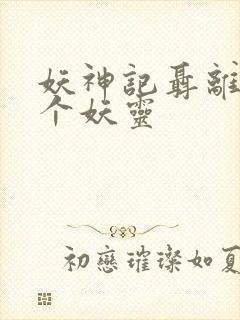 妖神記聶離
个妖靈
初戀璀璨如夏